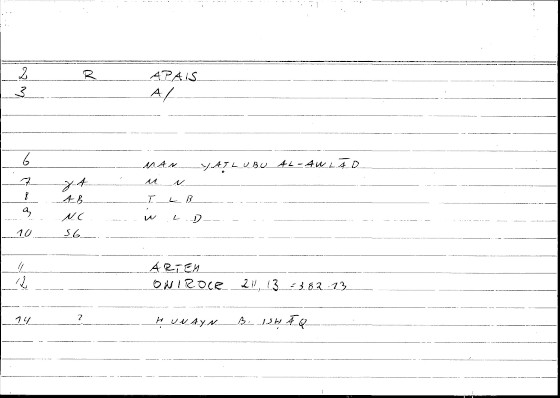 2 R APAIS
3 A/
6 MAN YAṬLUBU AL-AWLĀD
7 YA M N
8 AB T L B
9 NC W L D
10 SG
11 ARTEM
12 ONIROCR 211, 13 = 382.13
14 ? ḤUNAYN B. ISḤĀQ